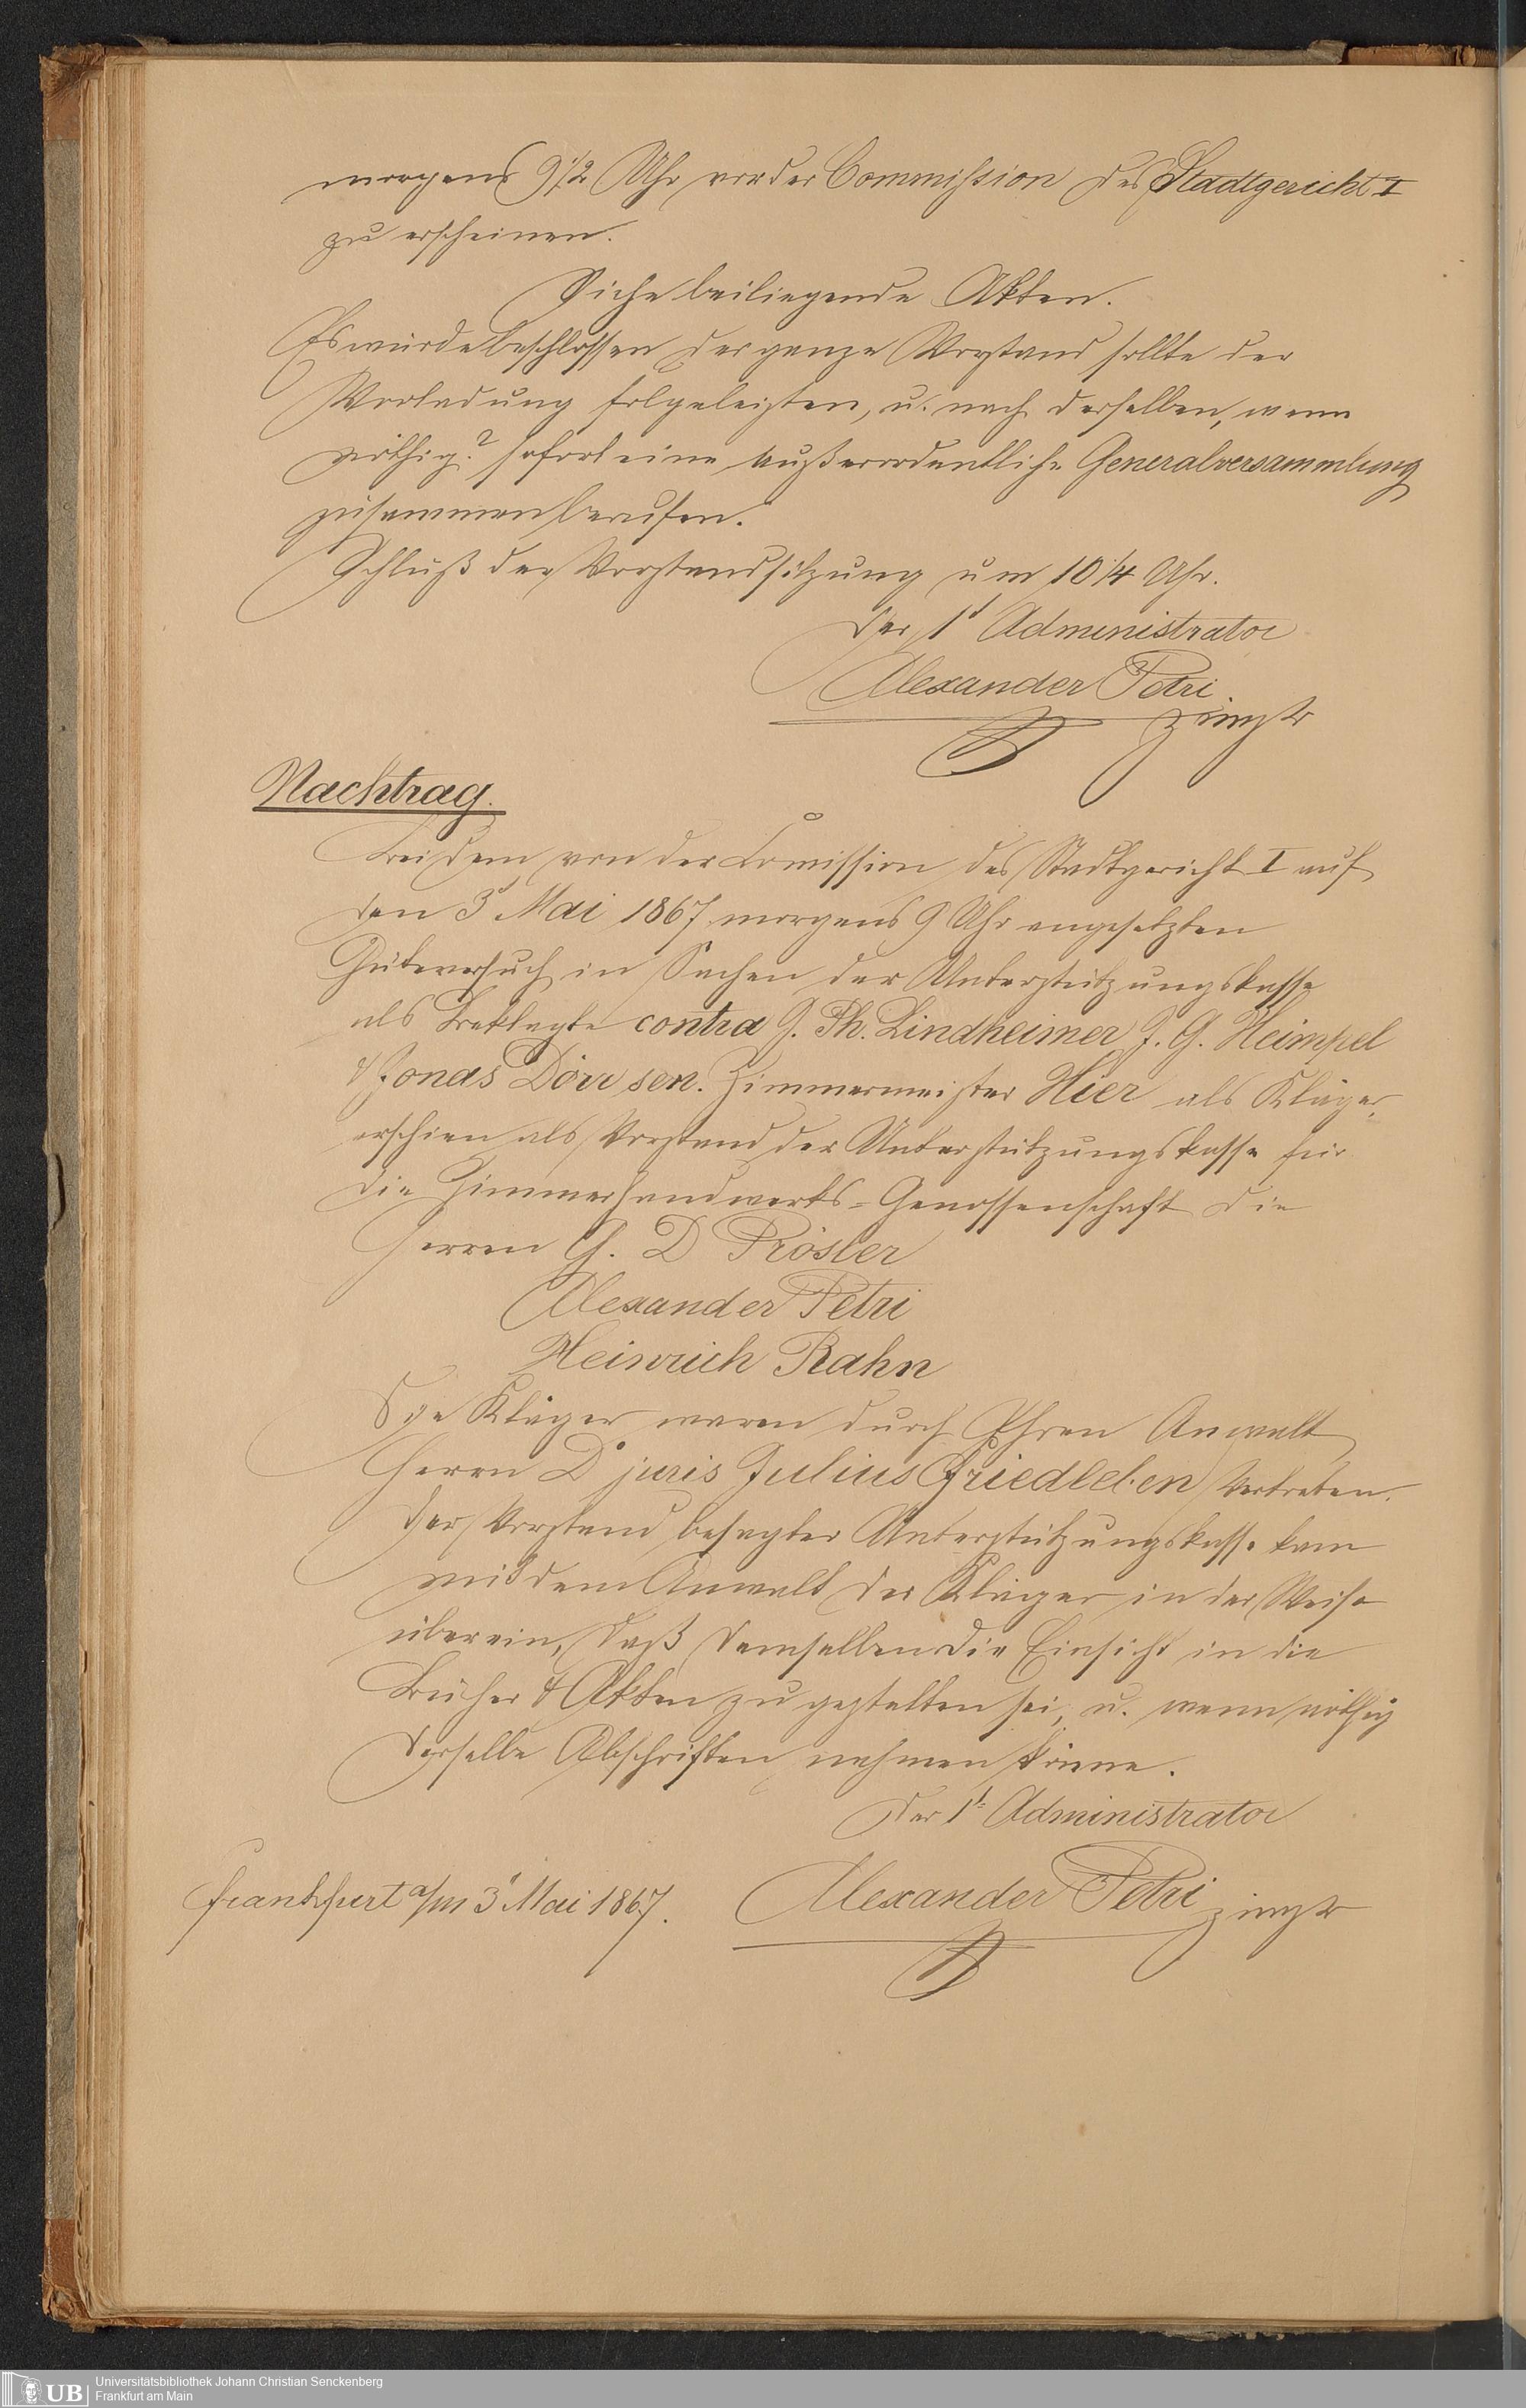 morgens 9 1/2 Uhr vor der Commission des Stadtgericht I
zu erscheinen.
Siehe beiliegende Akten.
Es wurde beschlossen der ganze Vorstand sollte der
Vorladung folgeleisten, u. nach derselben, wenn
nöthig? sofort eine außerordentliche Generalversammlung
zusammenberufen.
Schluß der Vorstandsitzung um 10 1/4 Uhr.
Der 1t Administrator
Alexander Petri
Zimstr
Nachtrag.
Bei dem von der Comission des Stadtgericht I auf
den 3t Mai 1867 morgens 9 Uhr angesetzten
Güteversuch in Sachen der Unterstützungskasse
als Beklagte contra J. Ph. Lindheimer J. G. Heimpel
& Jonas Dörr sen. Zimmermeister Hier als Kläger,
erschien als Vorstand der Unterstützungskasse für
die Zimmerhandwerks-Genossenschaft die
Herren G. D Prösler
Alexander Petri
Heinrich Rahn
Die Kläger waren durch Ihren Anwalt
Herrn Dr juris Julius Friedleben vertreten.
Der Vorstand besagter Unterstützungskasse kam
mit dem Anwalt der Kläger in der Weise
überein, daß demselben die Einsicht in die
Bücher & Akten zu gestatten sei, u. wenn nöthig
derselbe Abschriften nehmen könne.
Der 1t Administrator
Frankfurt a/m 3t Mai 1867. Alexander Petri Zimstr
UB Universitätsbibliothek Johann Christian Senckenberg
Frankfurt am Main